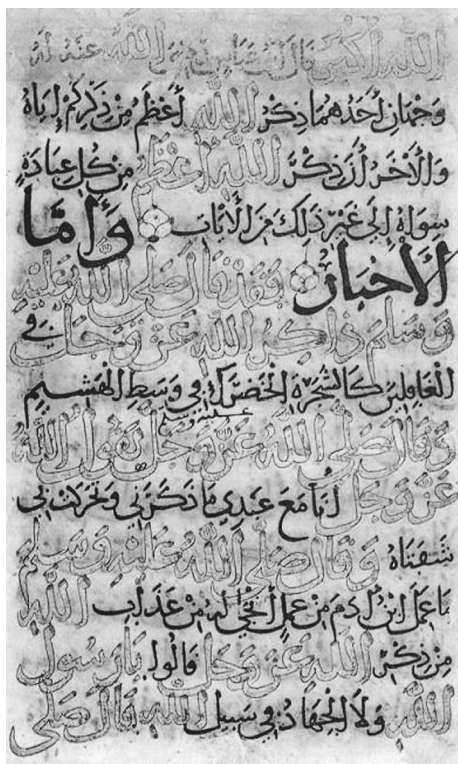 الله أكبر قال ابن عباس رضي الله عنه له
وجهان أحدهما ذكر الله أعظم من ذكركم إياه
والآخر أن ذكر الله أعظم من كل عبادة
سواه إلى غير ذلك من الآيات وأما
الأخبار فقد قال صلى الله عليه
وسلم ذاكر الله عز وجل في
الغافلين كالشجرة الخضراء في وسط الهشيم
عليه وسلم
وقال صلى الله عز وجل يقول الله
عز وجل أنا مع عبدي ما ذكرني وتحركت بي
شفتاه وقال صلى الله عليه وسلم
ما عمل ابن آدم من عمل أنجى له من عذاب الله
من ذكر الله عز وجل قالوا يا رسول
الله ولا الجهاد في سبيل الله قال صلى